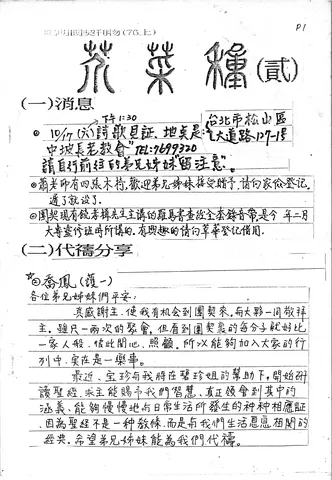 P1
芥菜種(貳)
(一)消息
下午1:30
◎10/17(六)詩歌見証、地点是:台北市松山區
大道路127-1号
中坡長老教會"TEL:7699320
請自行前往的弟兄姊妹"留注意"。
◎蕭老師有四張木椅,歡迎弟兄姊妹接受贈予,請向家伶登記,
遲了就沒了。
◎團契現有饒孝楫先生主講的羅馬書查經全套錄音帶是今年二月
大專靈修班時所講的,有興趣的請向草華登記借用。
(二)代禱分享
喬鳳(護一)
各位弟兄姊妹們平安:
真感謝主,使我有机会到團契來,与大夥一同敬拜
主。雖只一兩次的聚會,但看到團契裏的每分子就好比
一家人般,彼此関心、照顧,所以能夠加入大家的行
列中,实在是一樂事。
最近,宝珍与我將在慧珍姐的幫助下,開始研
讀聖經,求主能賜予我們智慧,真正領會到其中的
涵義,能夠慢慢地与日常生活所發生的种种相應証
,因為聖經不是一种教條,而是与我們生活息息相関的
經典,希望弟兄姊妹能為我們代禱。